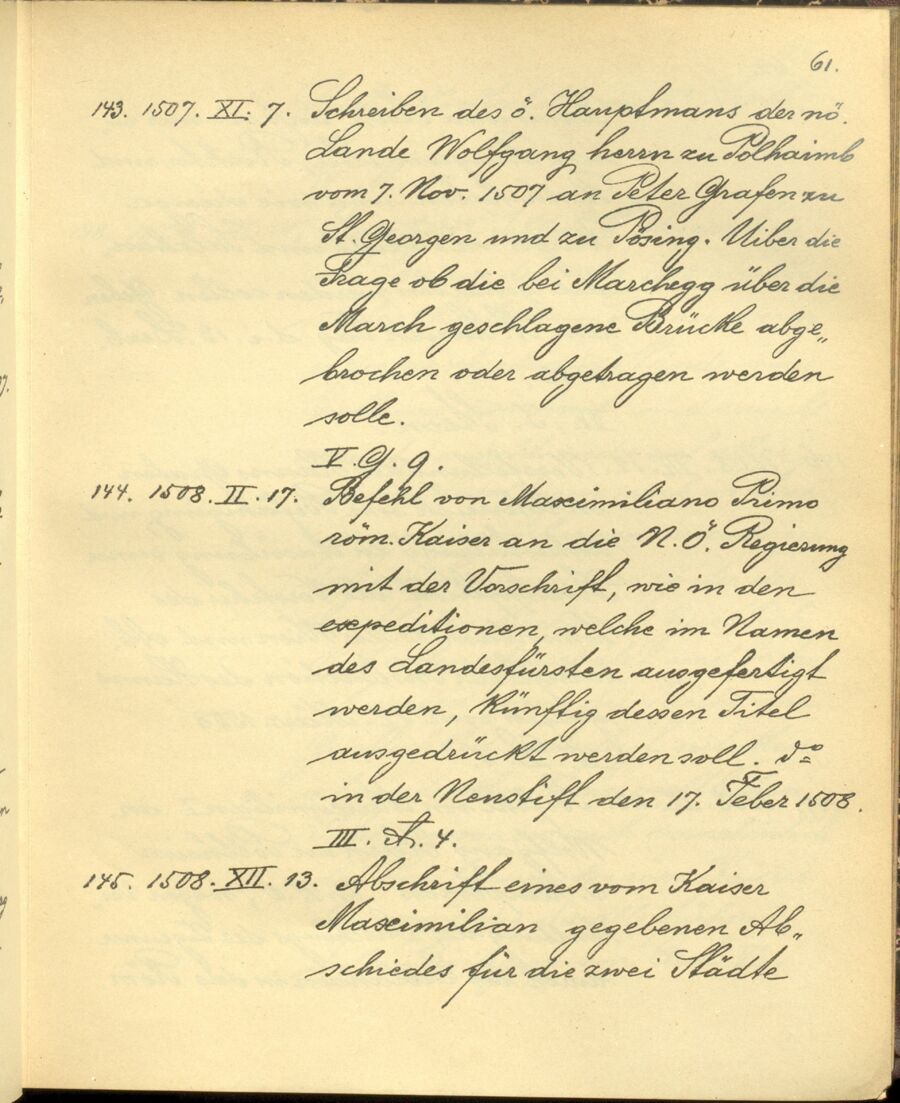 61.
143. 1507. XI. 7. Schreiben des ö. Hauptmans der nö.
Lande Wolfgang herrn zu Polhaimb
vom 7. Nov. 1507 an Peter Grafen zu
St. Georgen und zu Pösing. Uiber die
Frage ob die bei Marchegg über die
March geschlagene Brücke abge„
brochen oder abgetragen werden
solle.
V. G. 9.
144. 1508. II. 17. Befehl von Maximiliano Primo
röm. Kaiser an die N. Ö. Regierung
mit der Vorschrift, wie in den
expeditionen, welche im Namen
des Landesfürsten ausgefertigt
werden, künftig dessen Titel
ausgedrückt werden soll. do
in der Nenstift den 17. Feber 1508.
III. A. 4.
145. 1508. XII. 13. Abschrift eines vom Kaiser
Maximilian gegebenen Ab„
schiedes für die zwei Städte